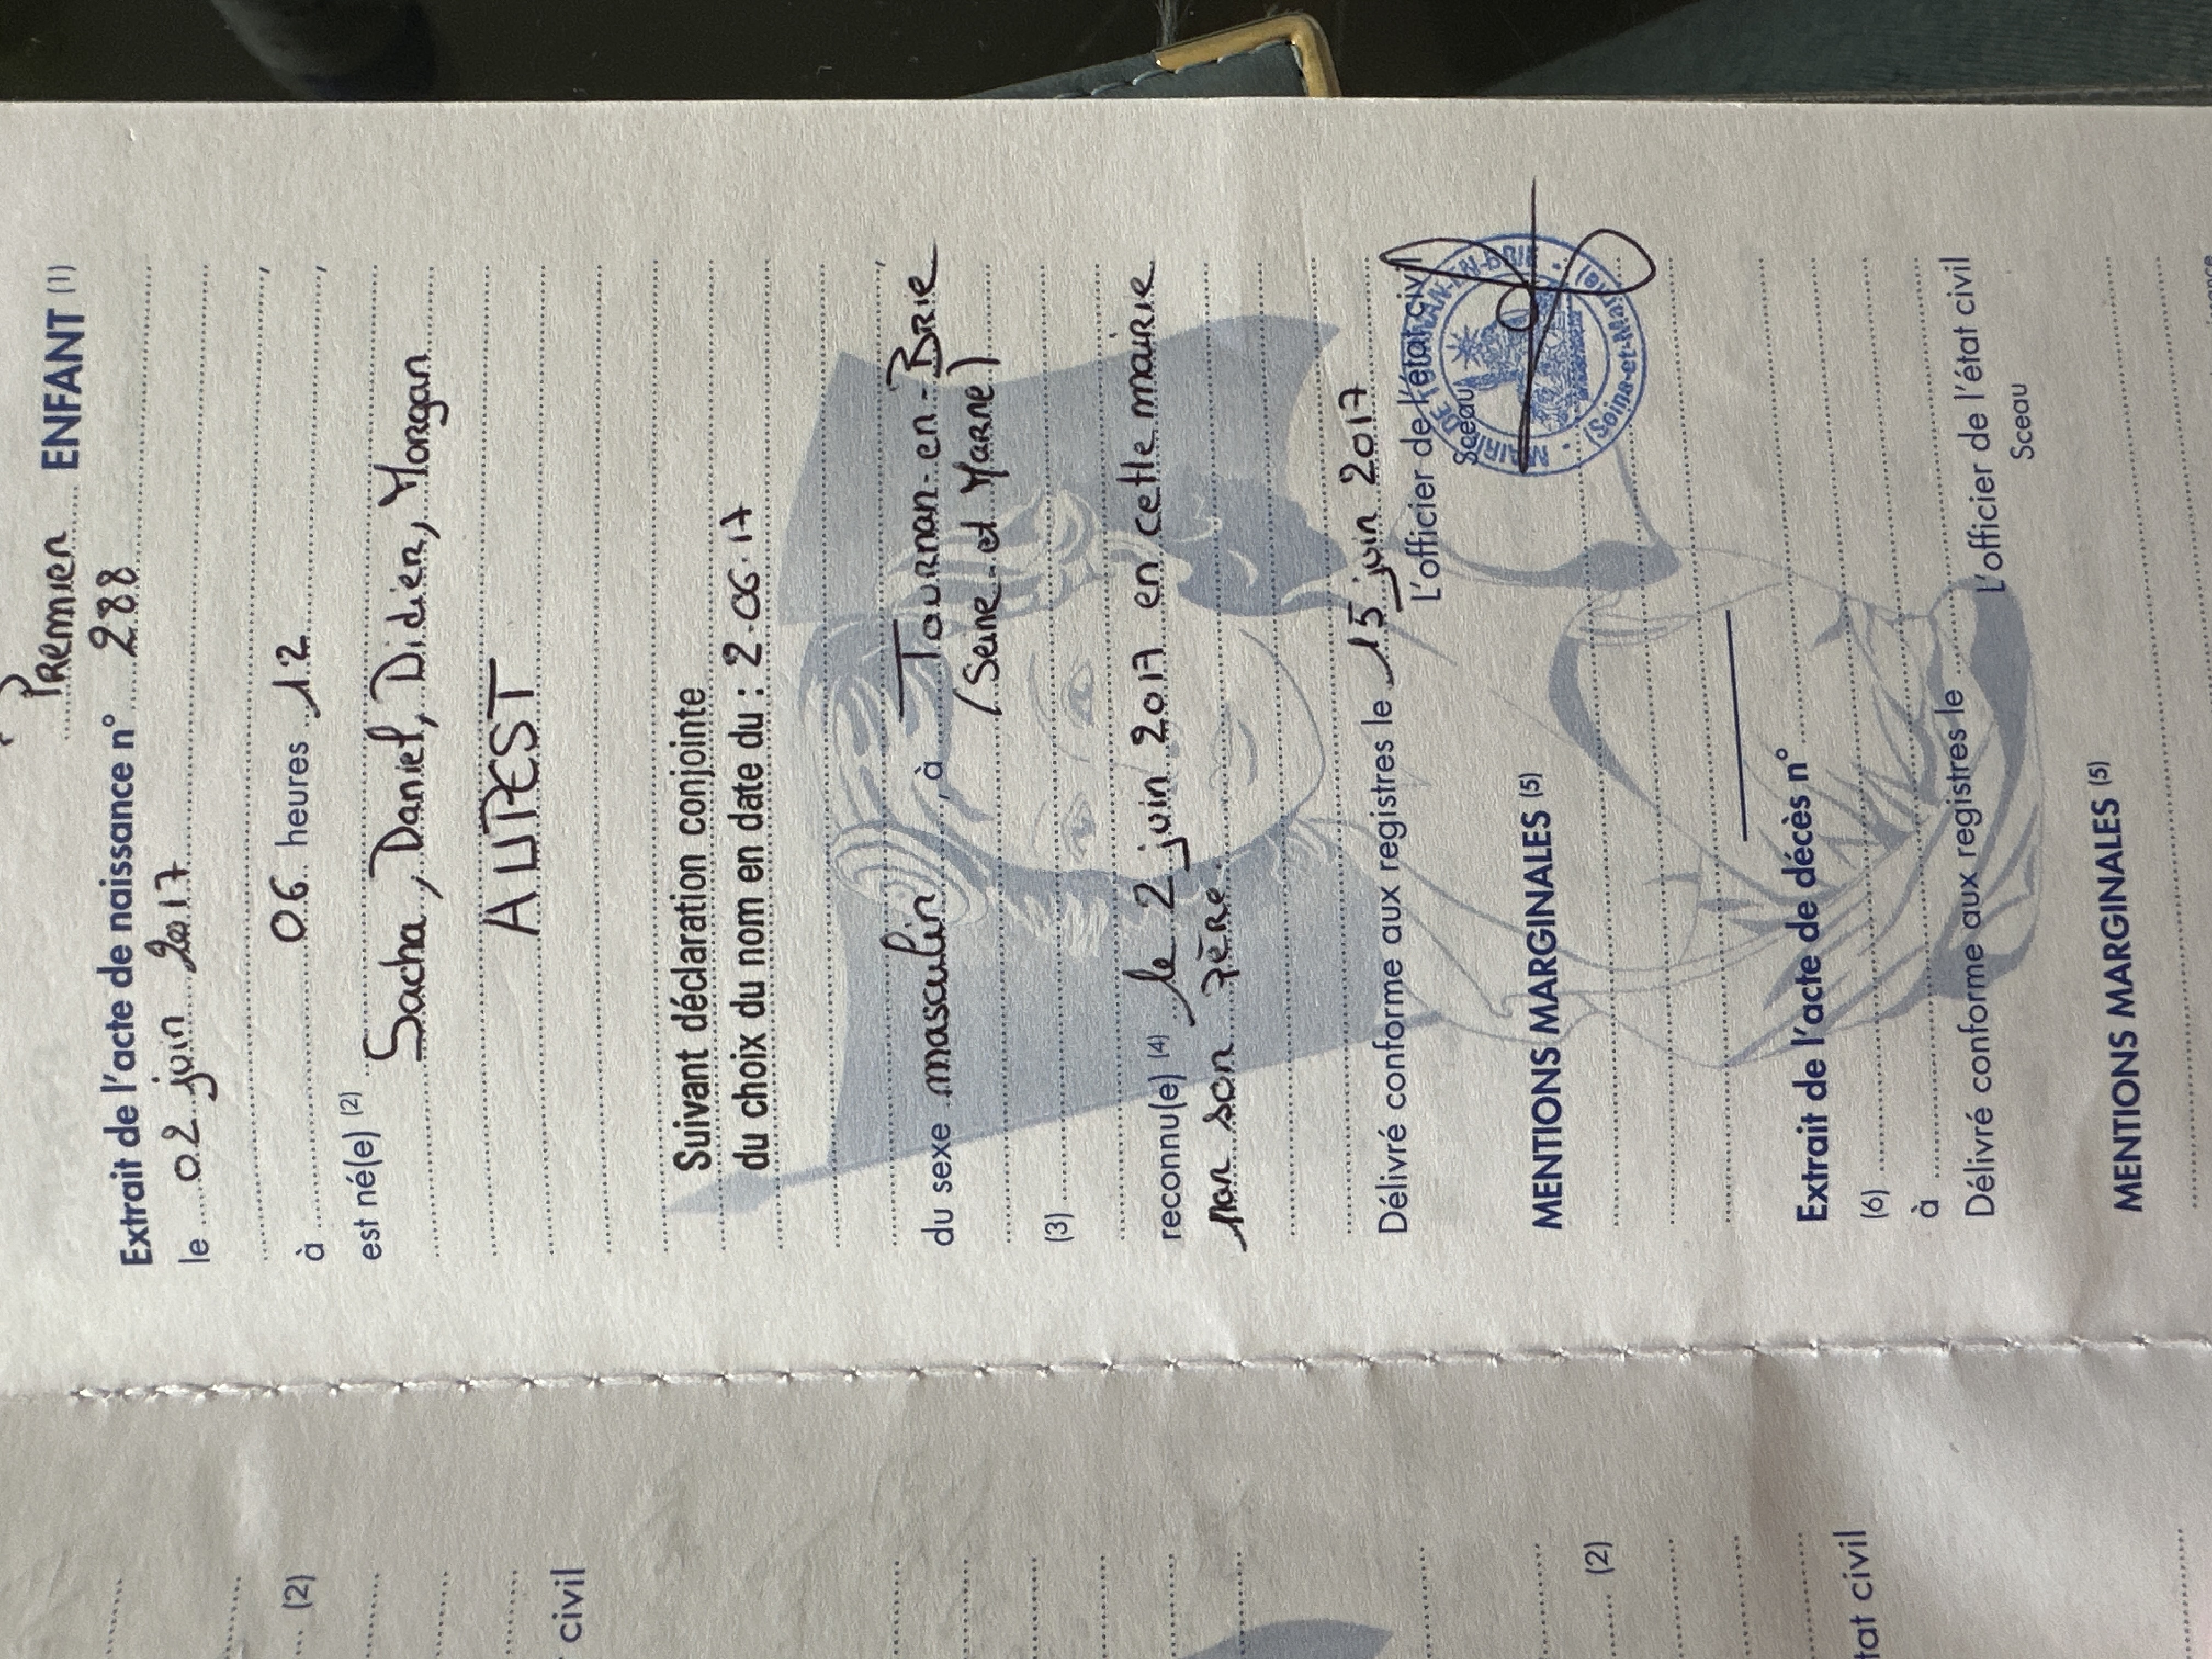 Premier ENFANT (1)
Extrait de l'acte de naissance n° 288
le 02 juin 2017
à 06 heures 12
est né(e) (2)
Sacha, Daniel, Didier, Morgan
AUPEST
Suivant déclaration conjointe
du choix du nom en date du : 2.06.17
du sexe masculin, à Tournan-en-Brie
(Seine-et Marne)
(3)
reconnu(e) (4) le 2 juin 2017 en cette mairie
par son père
Délivré conforme aux registres le 15 juin 2017
L'officier de l'état civil
Sceau
MAIRIE DE TOURNAN-EN-BRIE
(Seine-et-Marne)
MENTIONS MARGINALES (5)
Extrait de l'acte de décès n°
(6)
à
Délivré conforme aux registres le
L'officier de l'état civil
Sceau
MENTIONS MARGINALES (5)
(2)
civil
(2)
tat civil